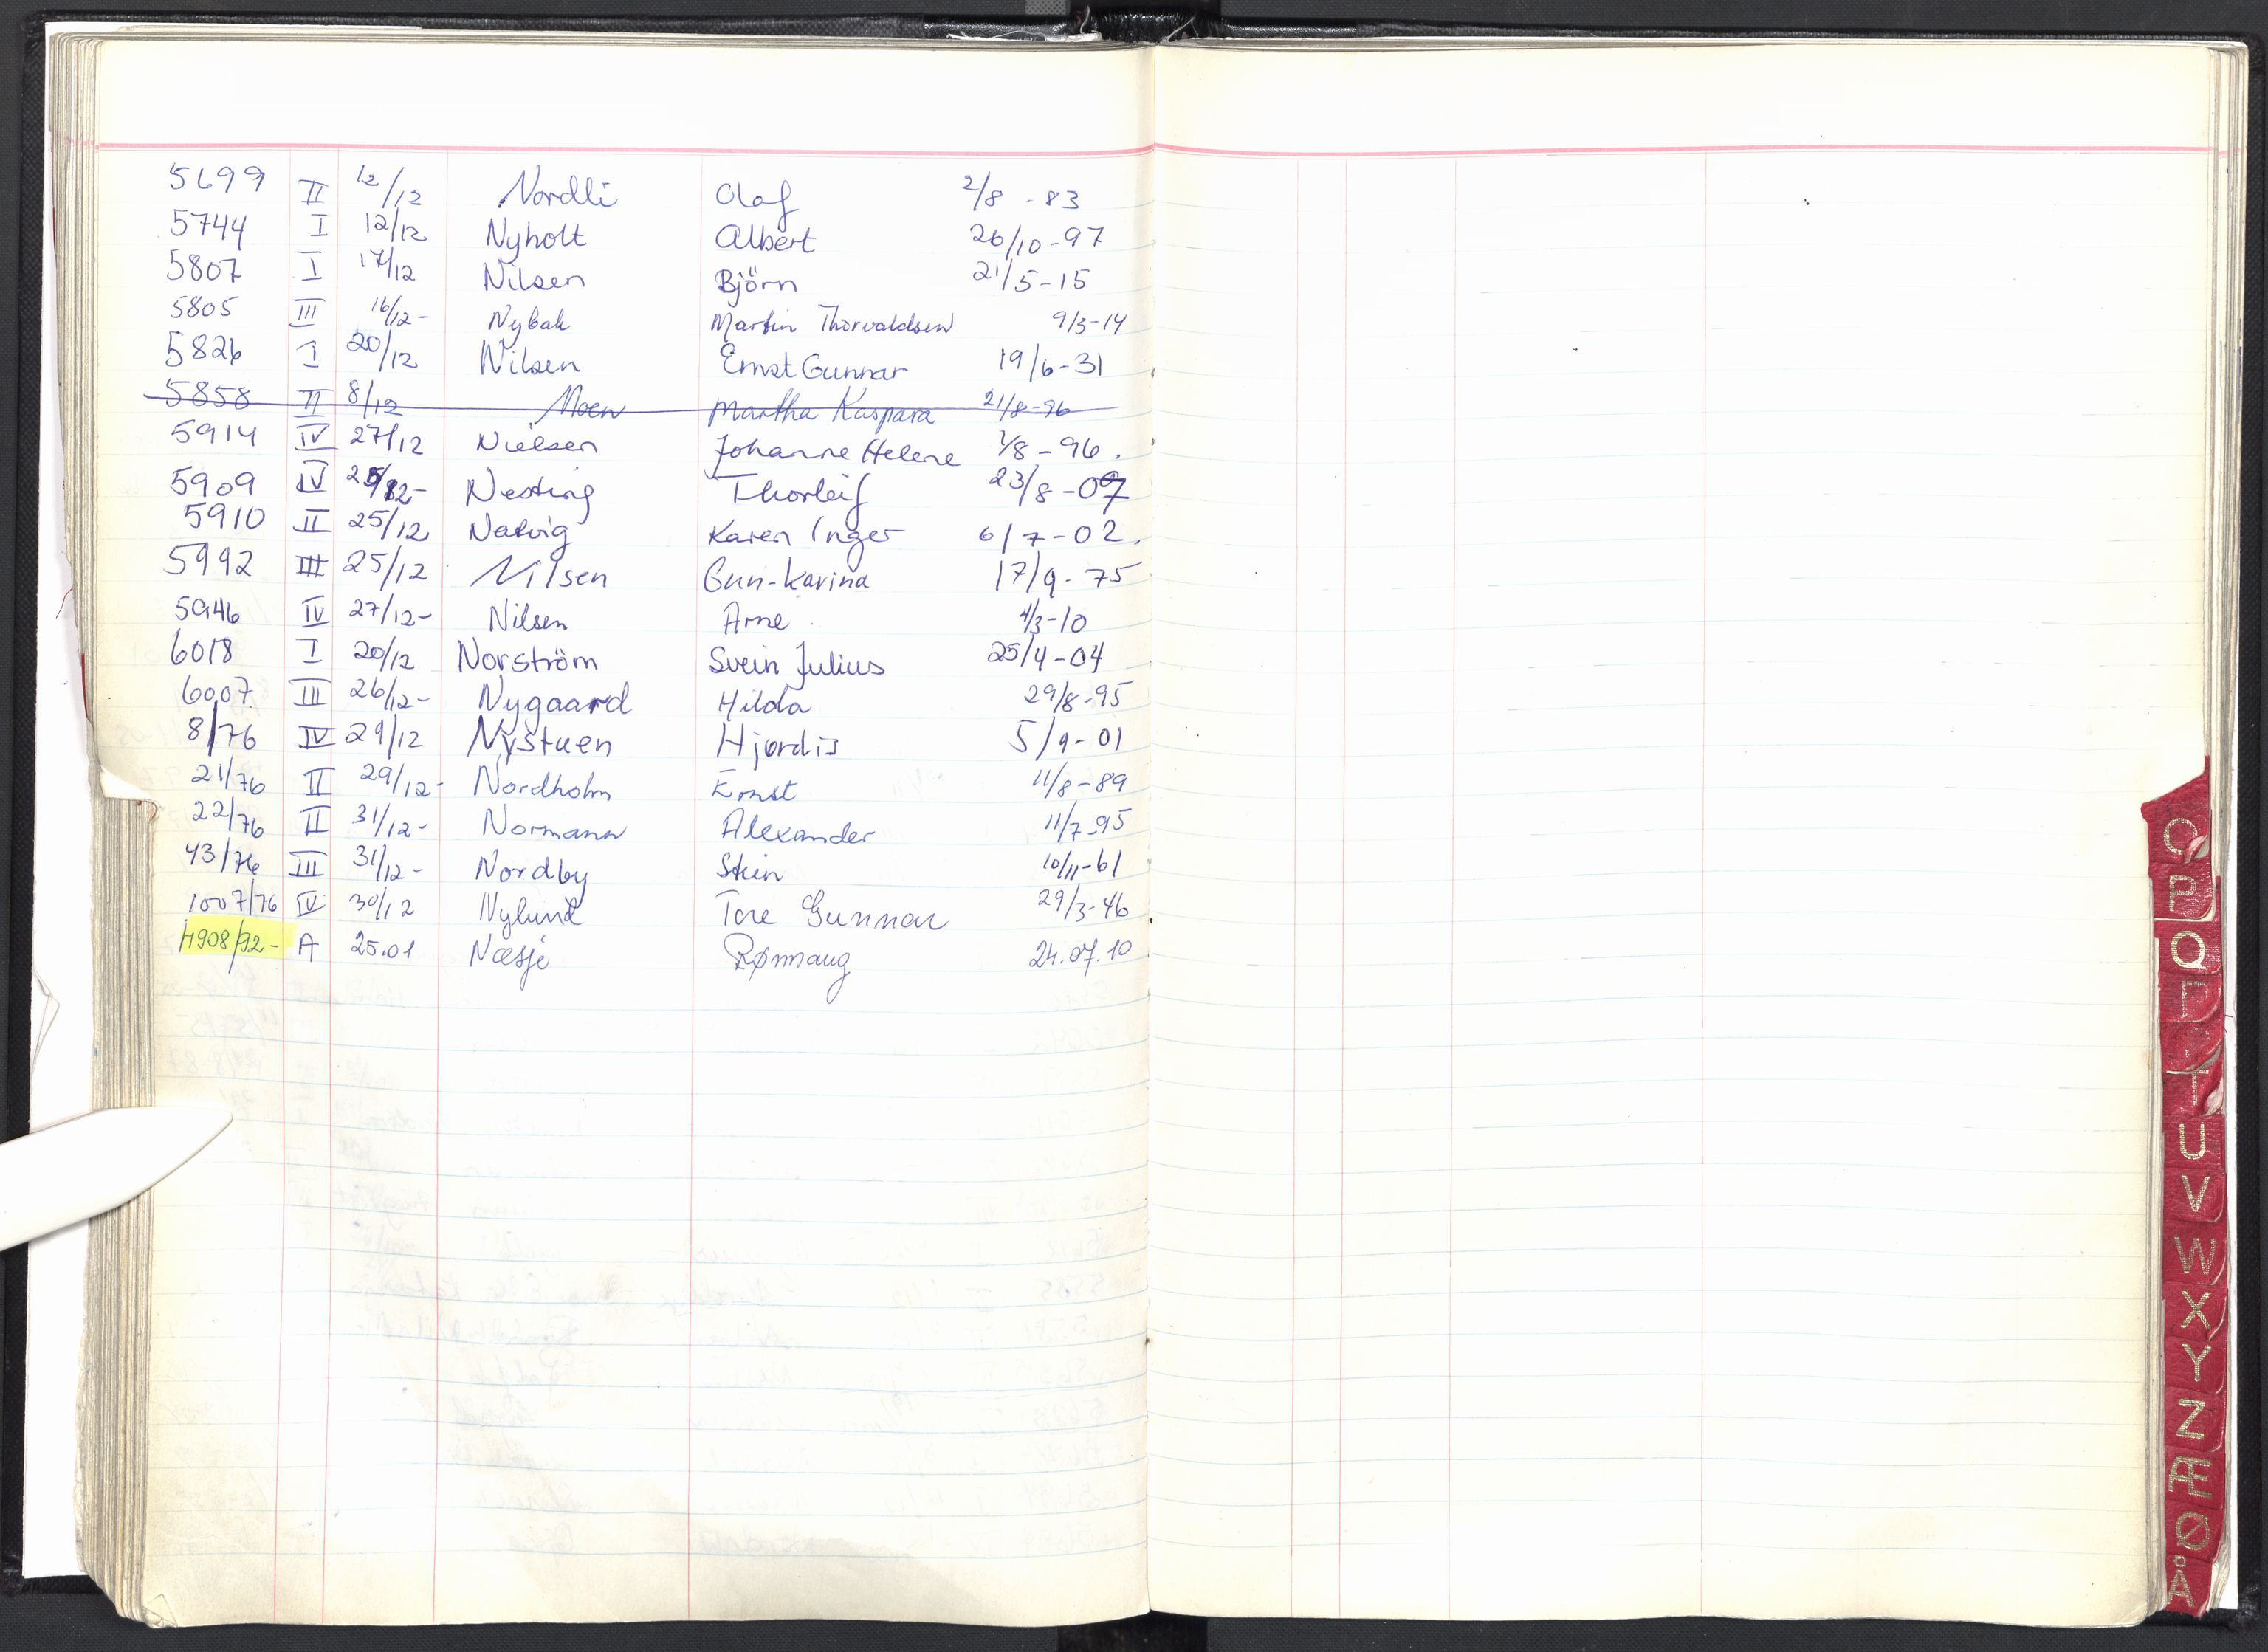 5699 II 12/12 Nordli Olaf 2/8 - 83
5744 I 12/12 Nyholt Albert 26/10-97
5807 I 17/12 Nilsen Björn 21/5-15
5805 III 16/12- Nybak Martin Thorvaldsen 9/3-14
5826 I 20/12 Nilsen Ernst Gunnar 19/6-31
5858 II 8/12 Moen Martha Kaspara 21/8-96
5914 IV 27/12 Nielsen Johanne Helene 1/8-96.
5909 IV 25/12- Nesting Thorleif 23/8-07
5910 II 25/12 Natvig Karen Inger 6/7-02.
5992 III 25/12 Nilsen Gun-Karina 17/9-75
5946 IV 27/12- Nilsen Arne 4/3-10
6018 I 20/12 Norström Svein Julius 25/4-04
6007 III 26/12- Nygaard Hilda 29/8-95
8/76 IV 29/12 Nystuen Hjørdis 5/9-01
21/76 II 29/12- Nordholm Ernst 11/8-89
22/76 II 31/12- Normann Alexander 11/7-95
43/76 III 31/12- Nordby Stein 10/11-61
1007/76 IV 30/12 Nylund Tore Gunnar 29/3-46
4908/92- A 25.01 Næsje Rønnaug 24.07.10
O
P
Q
R
T
U
V
W
X
Y
Z
Æ
Ø
Å